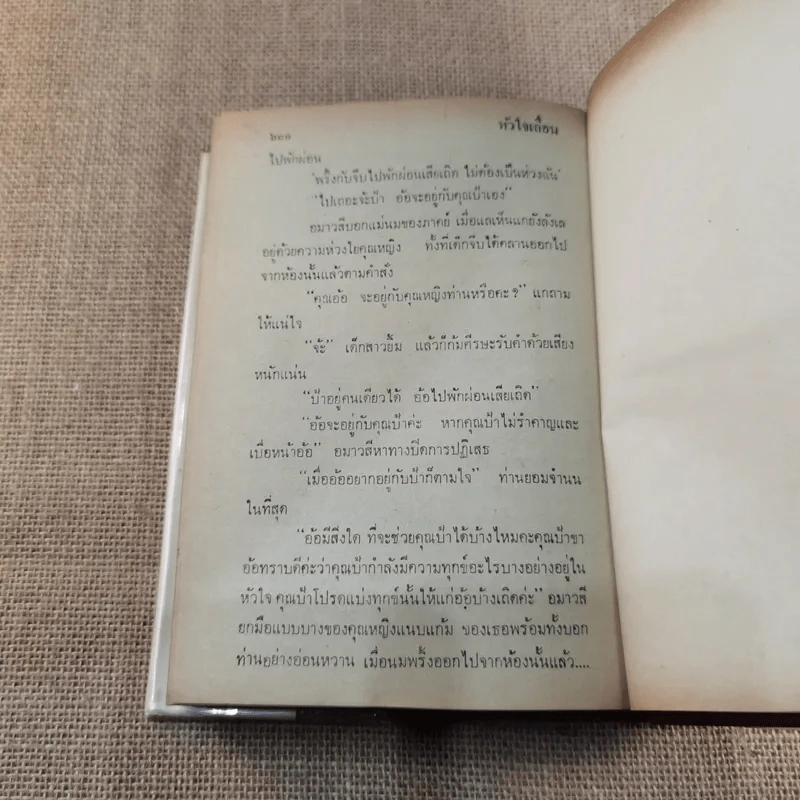 ๖๒๑ หัวใจเถื่อน
ไปพักผ่อน
“พริ้งกับจีบไปพักผ่อนเสียเถิด ไม่ต้องเป็นห่วงฉัน”
“ไปเถอะจ้ะป้า อ้อจะอยู่กับคุณป้าเอง”
อมาวสีบอกแม่นมของภาคย์ เมื่อแลเห็นแกยังลังเล
อยู่ด้วยความห่วงใยคุณหญิง ทั้งที่เด็กจีบได้คลานออกไป
จากห้องนั้นแล้วตามคำสั่ง
“คุณอ้อ จะอยู่กับคุณหญิงท่านหรือคะ?” แกถาม
ให้แน่ใจ
“จ้ะ” เด็กสาวยิ้ม แล้วก็ก้มศีรษะรับคำด้วยเสียง
หนักแน่น
“ป้าอยู่คนเดียวได้ อ้อไปพักผ่อนเสียเถิด”
“อ้อจะอยู่กับคุณป้าค่ะ หากคุณป้าไม่รำคาญและ
เบื่อหน้าอ้อ” อมาวสีหาทางปิดการปฏิเสธ
“เมื่ออ้ออยากอยู่กับป้าก็ตามใจ” ท่านยอมจำนน
ในที่สุด
“อ้อมีสิ่งใด ที่จะช่วยคุณป้าได้บ้างไหมคะคุณป้าขา
อ้อทราบดีค่ะว่าคุณป้ากำลังมีความทุกข์อะไรบางอย่างอยู่ใน
หัวใจ คุณป้าโปรดแบ่งทุกข์นั้นให้แก่อ้อบ้างเถิดค่ะ” อมาวสี
ยกมือแบบบางของคุณหญิงแนบแก้ม ของเธอพร้อมทั้งบอก
ท่านอย่างอ่อนหวาน เมื่อนมพริ้งออกไปจากห้องนั้นแล้ว....